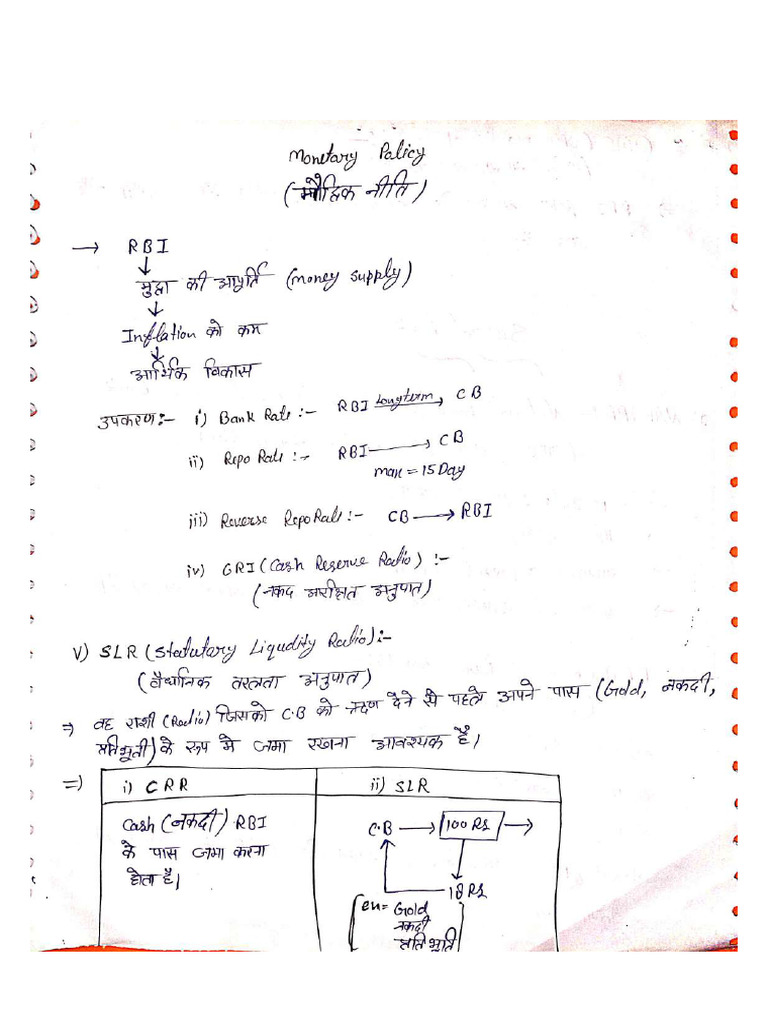 Monetary Policy
(मौद्रिक नीति)
→ RBI
↓
मुद्रा की आपूर्ति (money supply)
↓
Inflation को कम
↓
आर्थिक विकास
उपकरण:- i) Bank Rate :- RBI Longterm → CB
ii) Repo Rate :- RBI → CB
max = 15 Day
iii) Reverse Repo Rate :- CB → RBI
iv) CRI (Cash Reserve Radio) :-
(नकद आरक्षित अनुपात)
v) SLR (Statutary Liqudity Radio) :-
(वैधानिक तरलता अनुपात)
⇒ वह राशी (Radio) जिसको C.B को ऋण देने से पहले अपने पास (Gold, नकदी,
प्रतिभूती) के रूप मे जमा रखना आवश्यक है।
⇒) i) CRR ii) SLR
Cash (नकदी) RBI
के पास जमा करना
होता है।
C.B → 100 Rs →
↓
18 Rs
en = Gold
नकदी
प्रतिभूति